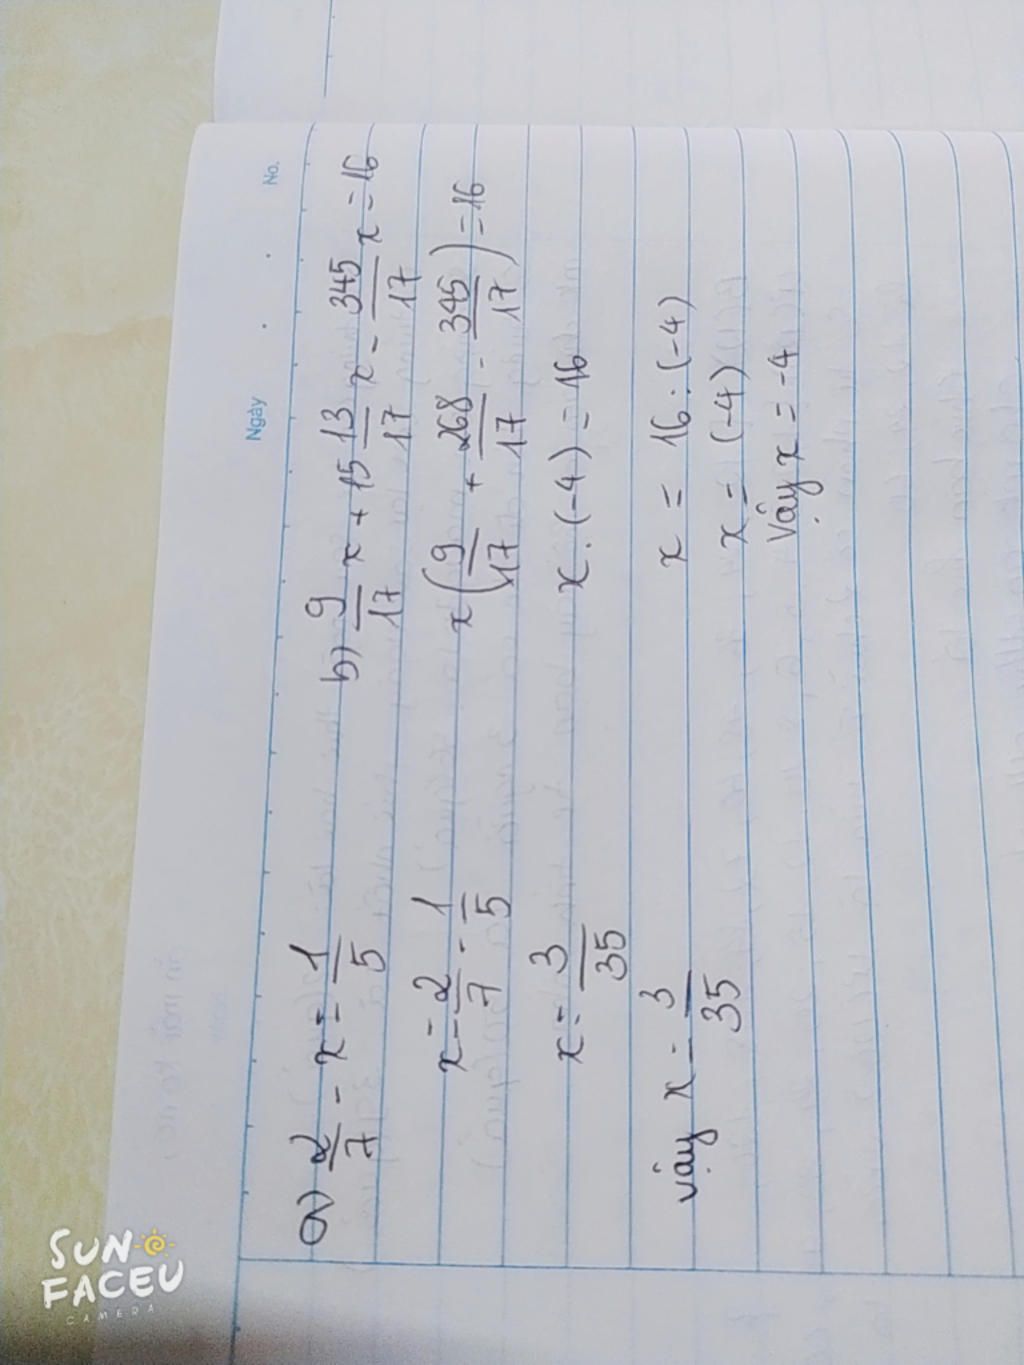 Ngày . . No.
a) 2/7 - x = 1/5
x = 2/7 - 1/5
x = 3/35
Vậy x = 3/35
b) 9/17 x + 15 13/17 x - 345/17 x = 16
x (9/17 + 268/17 - 345/17) = 16
x . (-4) = 16
x = 16 : (-4)
x = (-4)
Vậy x = -4
SUN
FACEU
CAMERA